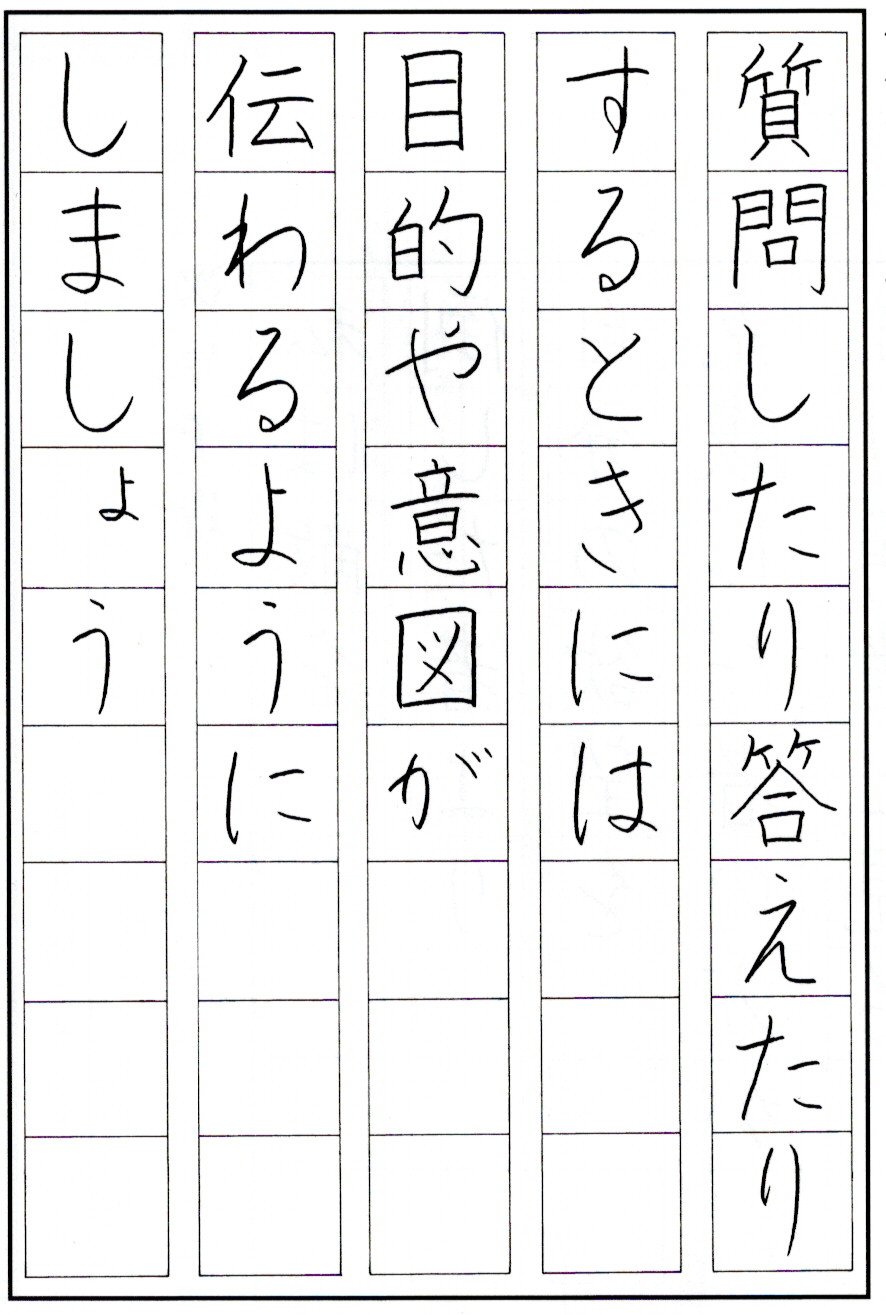 質問したり答えたり
するときには
目的や意図が
伝わるように
しましょう